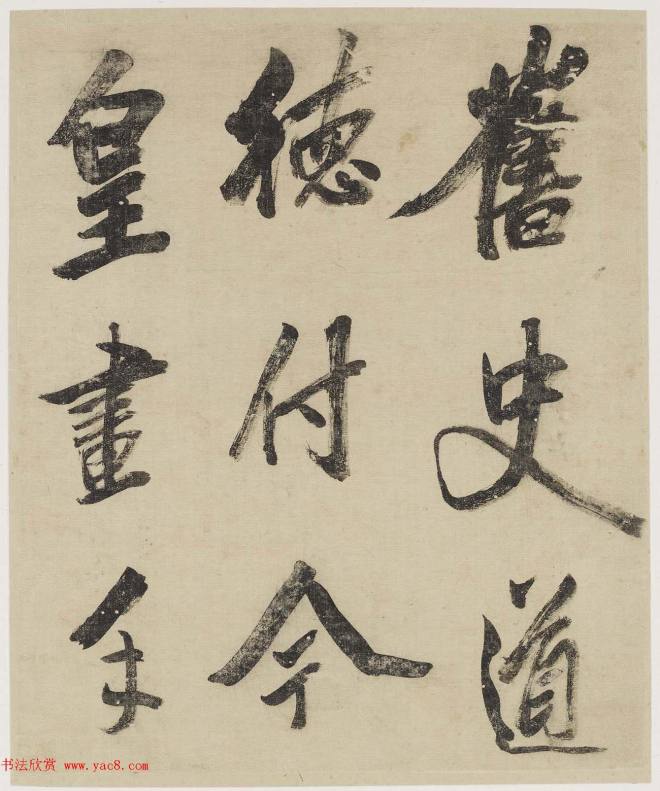 舊史道
德付今
皇畫手
书法欣赏 www.yac8.com